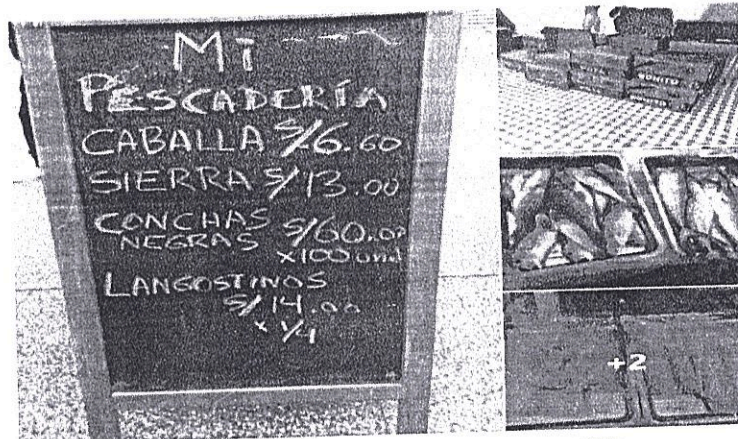 Mi
PESCADERÍA
CABALLA S/6.60
SIERRA S/13.00
CONCHAS
NEGRAS S/60.00
x100 und
LANGOSTINOS
S/14.00
x 1/4
BONITO
+2